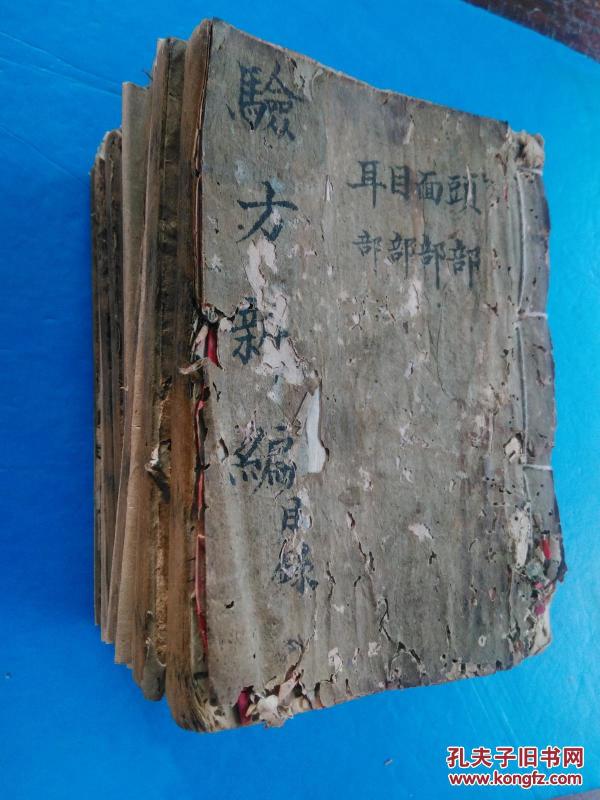 頭部
面部
目部
耳部
驗方新編
目錄
孔夫子旧书网
www.kongfz.com